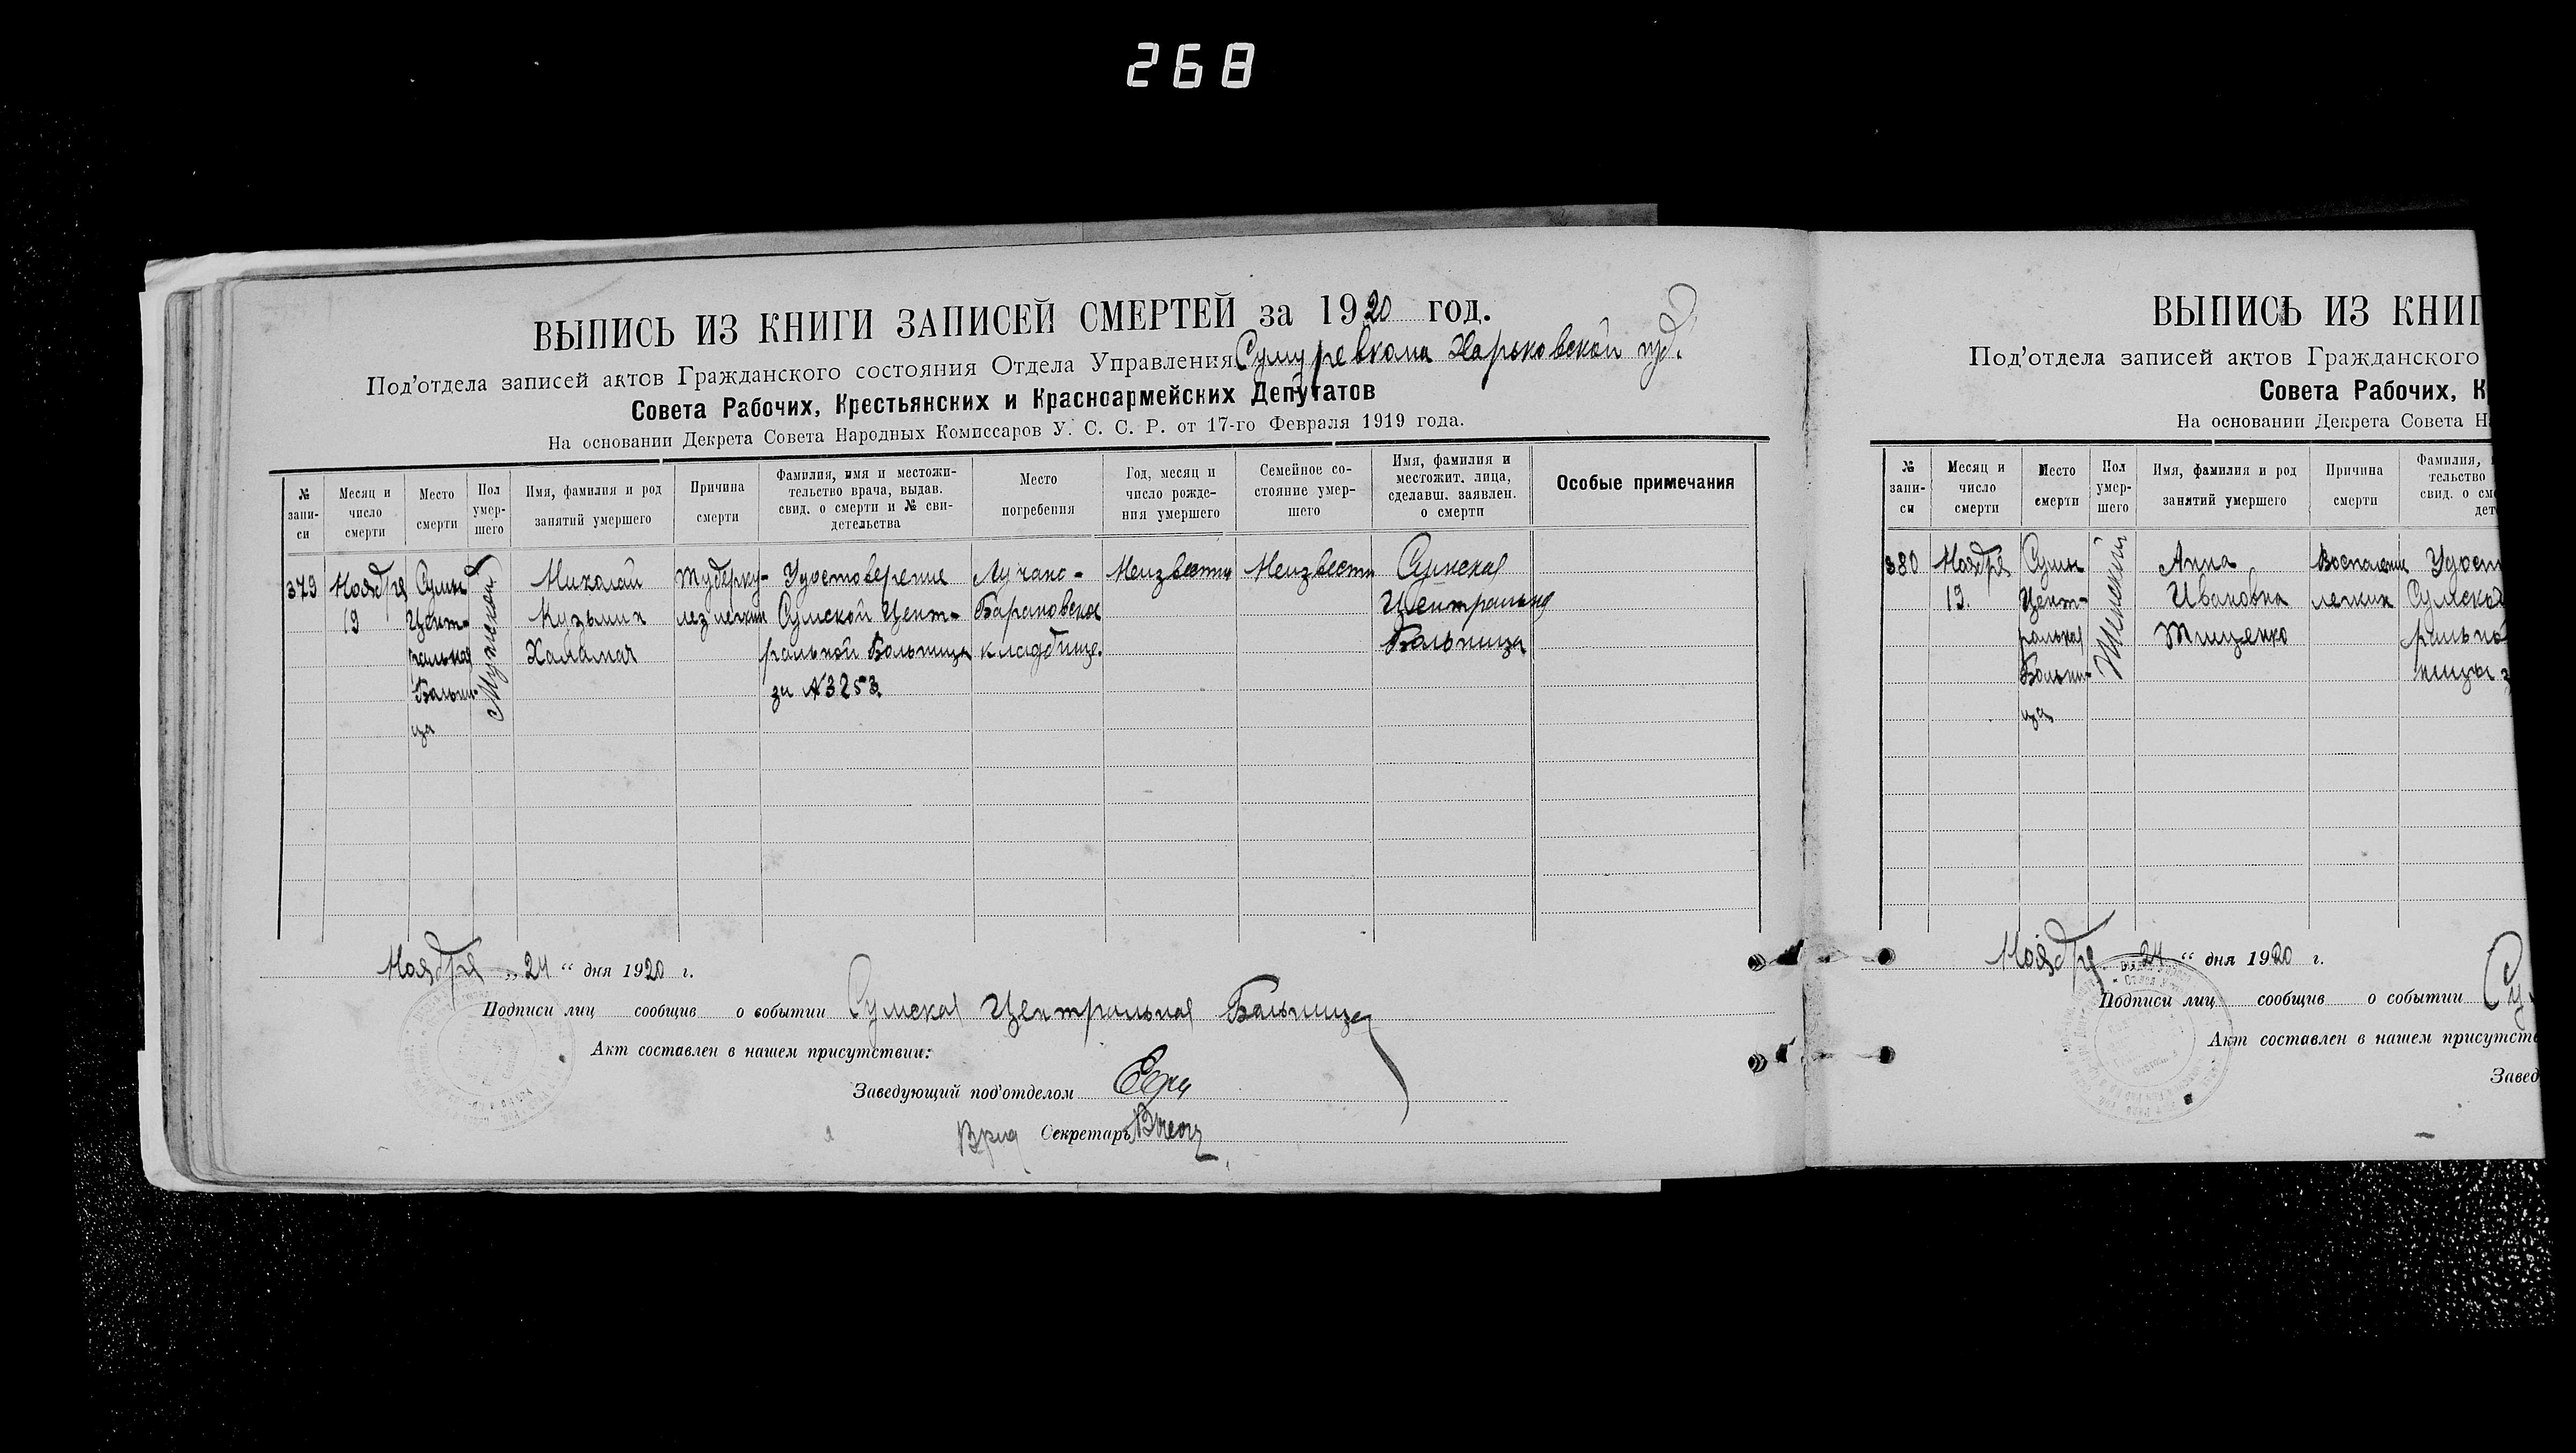 268
ВЫПИСЬ ИЗ КНИГИ ЗАПИСЕЙ СМЕРТЕЙ за 1920 год.
Под'отдела записей актов Гражданского состояния Отдела Управления Сумуревкома Харьковской губ.
Совета Рабочих, Крестьянских и Красноармейских Депутатов
На основании Декрета Совета Народных Комиссаров У. С. С. Р. от 17-го Февраля 1919 года.
№ запи-
си
Месяц и
число
смерти
Место
смерти
Пол
умер-
шего
Имя, фамилия и род
занятий умершего
Причина
смерти
Фамилия, имя и местожи-
тельство врача, выдав.
свид. о смерти и № сви-
детельства
Место
погребения
Год, месяц и
число рожде-
ния умершего
Семейное со-
стояние умер-
шего
Имя, фамилия и
местожит. лица,
сделавш. заявлен.
о смерти
Особые примечания
379
Ноября
19
Сумы
Цент-
ральная
Больни-
ца
Мужской
Николай
Кузьмич
Халамач
Туберку-
лез легких
Удостоверение
Сумской Цент-
ральной Больницы
за №3253
Лучано-
Барановское
кладбище.
Неизвестно
Неизвестно
Сумская
Центральная
Больница
Ноября „24“ дня 1920 г.
Подписи лиц сообщив о событии Сумская Центральная Больница
Акт составлен в нашем присутствии:
Заведующий под'отделом
Врид Секретарь
ВЫПИСЬ ИЗ КНИГ
Под'отдела записей актов Гражданского
Совета Рабочих, К
На основании Декрета Совета Н
№
запи-
си
Месяц и
число
смерти
Место
смерти
Пол
умер-
шего
Имя, фамилия и род
занятий умершего
Причина
смерти
Фамилия,
тельство
свид. о сме
дет
380
Ноября
19.
Сумы
Цент-
ральная
Больни-
ца
Женский
Анна
Ивановна
Тищенко
Воспаление
легких
Удост
Сумской
рально
ницы з
Ноября 24 “ дня 1920 г.
Подписи лиц сообщив о событии Су
Акт составлен в нашем присутств
Завед